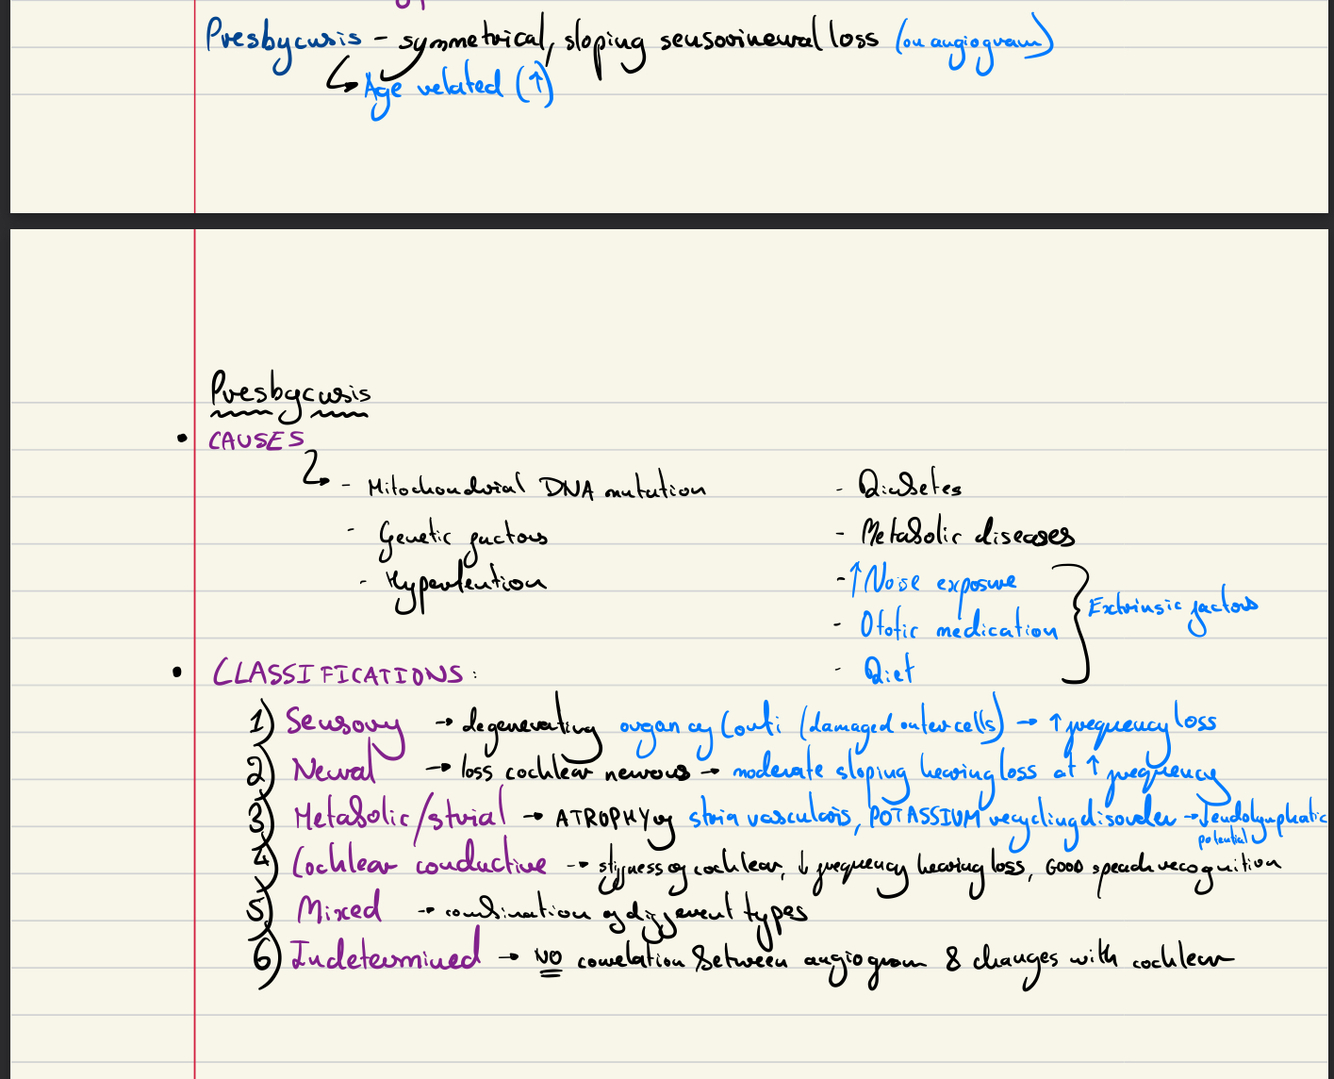 Presbycusis - symmetrical, sloping sensorineural loss (on angiogram)
↳ Age related (↑)
Presbycusis
• CAUSES
- Mitochondrial DNA mutation
- Genetic factors
- Hypertention
- Diabetes
- Metabolic diseases
- ↑ Noise exposure
- Ototic medication
- Diet
} Extrinsic factors
• CLASSIFICATIONS:
1) Sensory → degenerating organ of Corti (damaged outer cells) → ↑ frequency loss
2) Neural → loss cochlear nervous → moderate sloping hearing loss at ↑ frequency
3) Metabolic/strial → ATROPHY of stria vascularis, POTASSIUM recycling disorder → ↓ endolymphatic potential
4) Cochlear conductive → stiffness of cochlear, ↓ frequency hearing loss, GOOD speach recognition
5) Mixed → combination of different types
6) Indetermined → NO correlation between angiogram & changes with cochlear